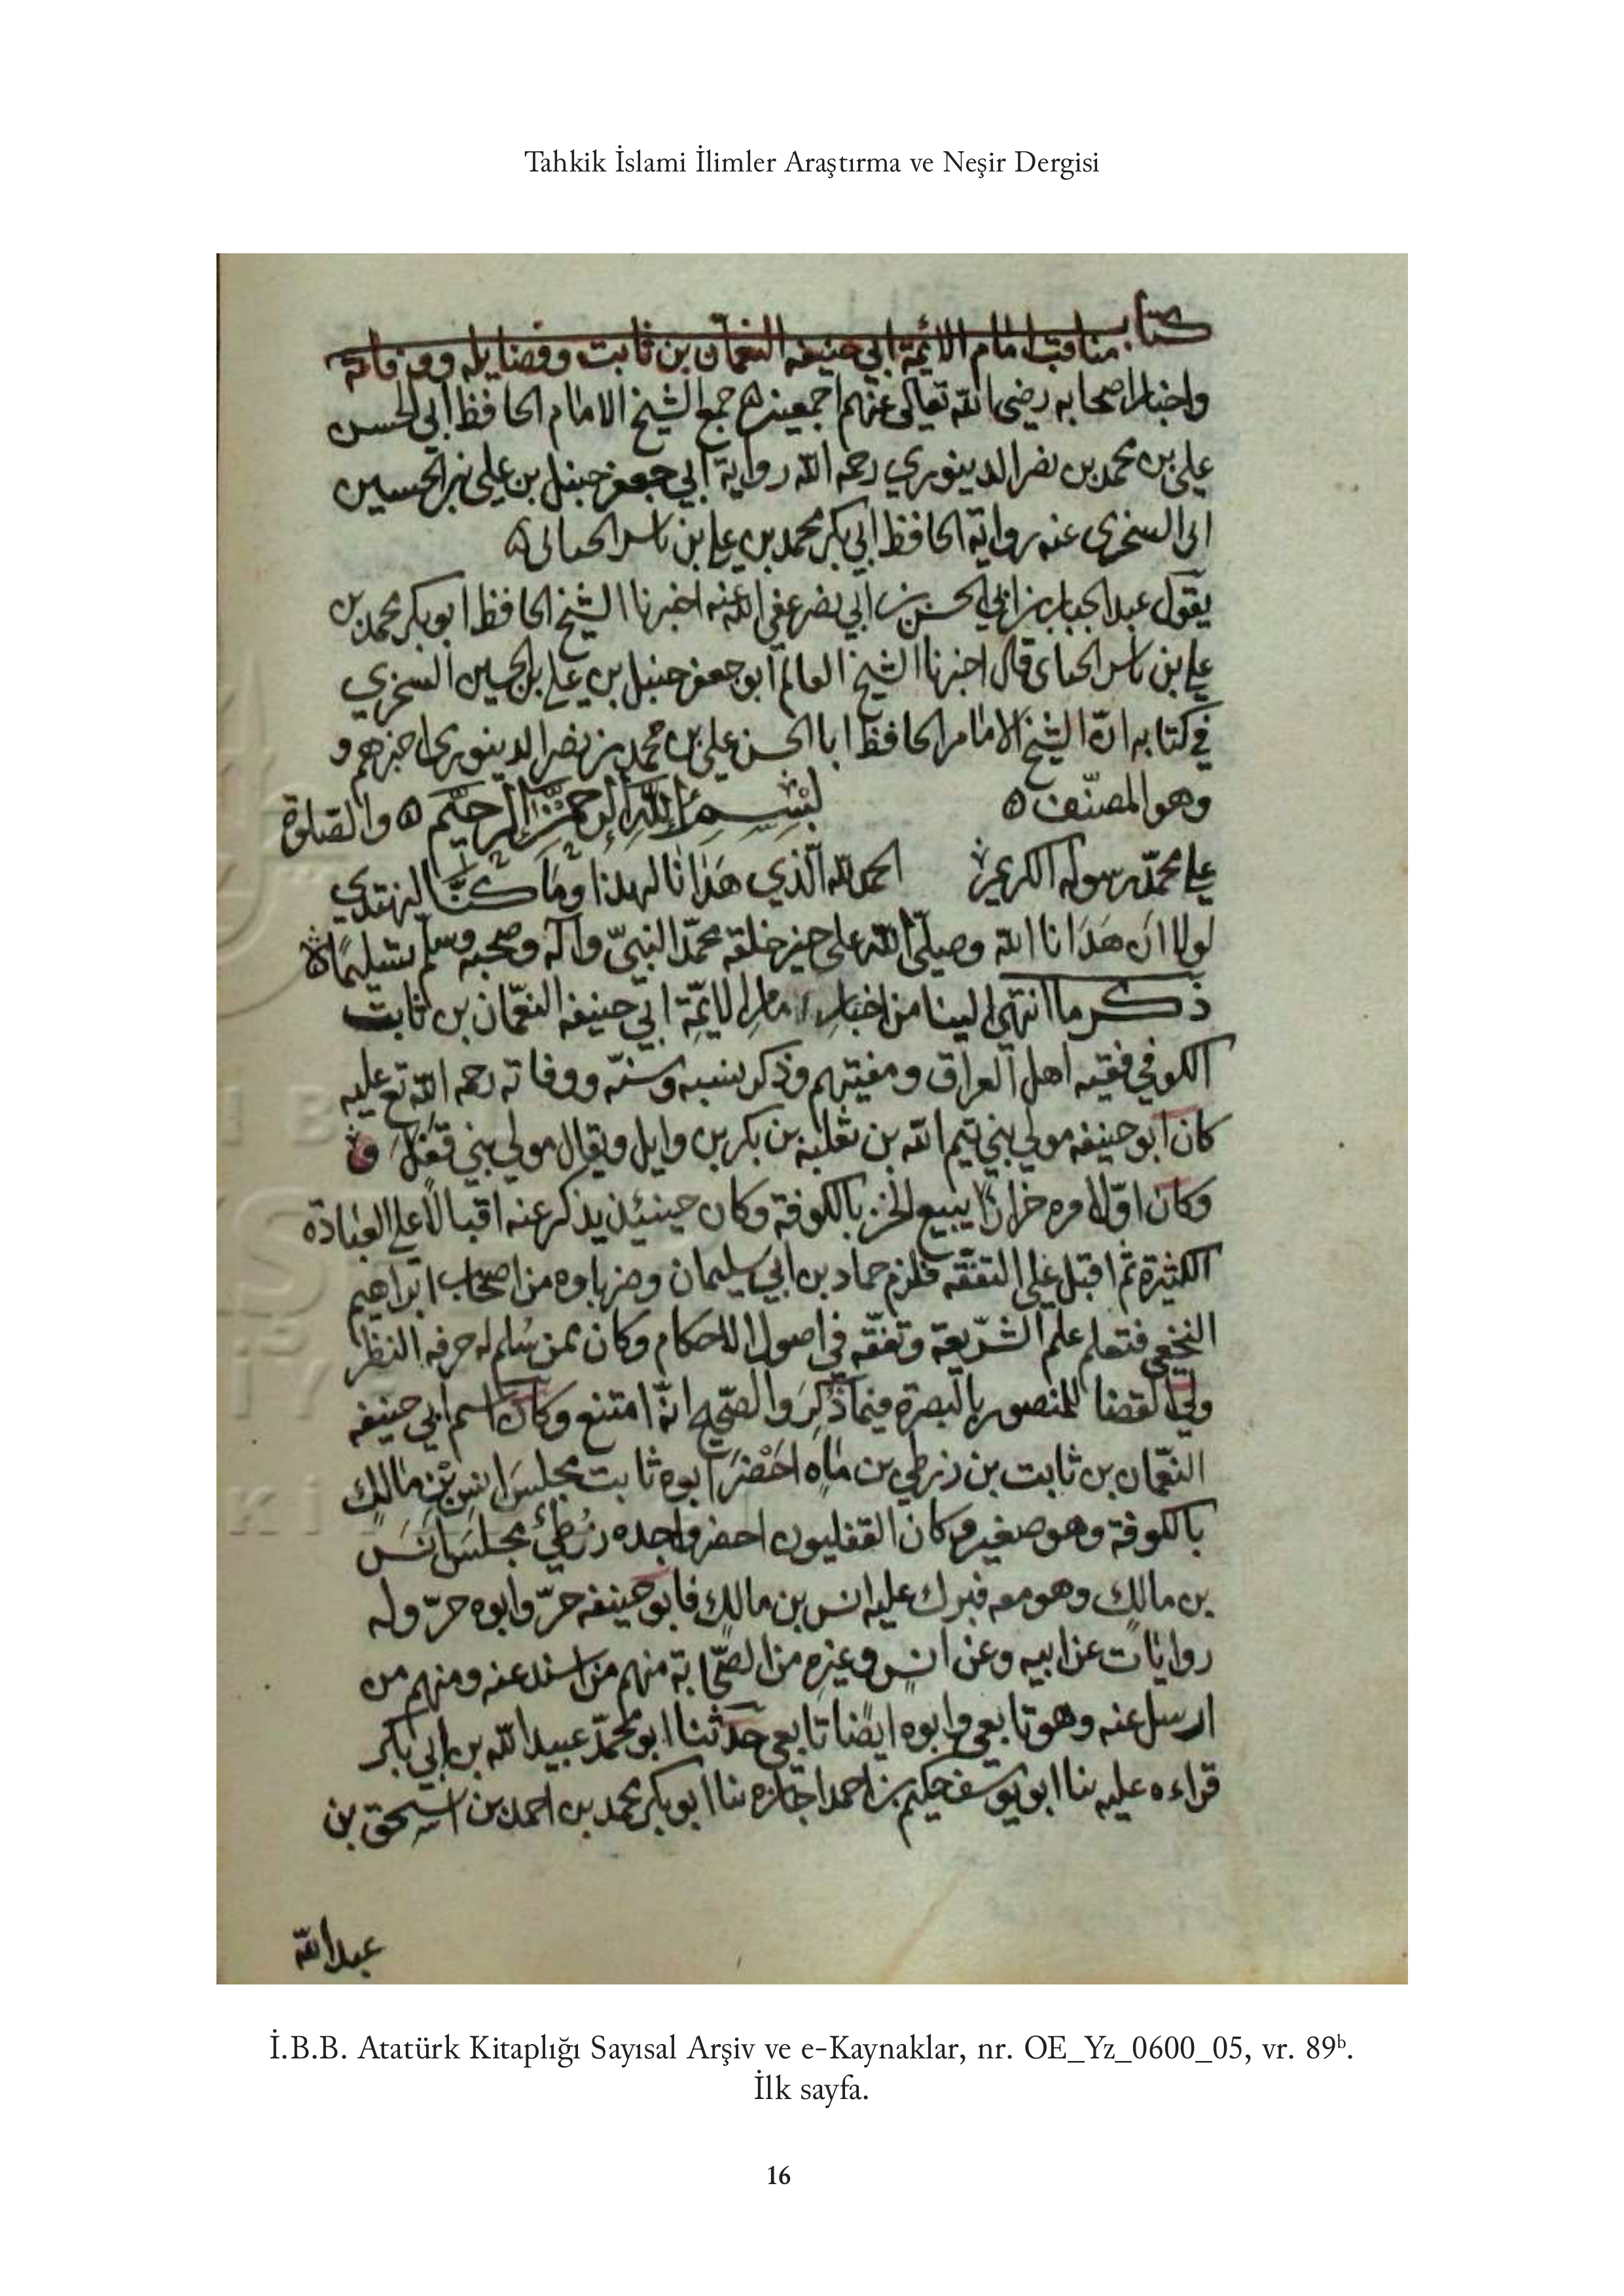 Tahkik İslami İlimler Araştırma ve Neşir Dergisi
كتاب مناقب امام الائمة ابي حنيفه النعمان بن ثابت وفضايله ووفاته
واخبار اصحابه رضى الله تعالى عنهم اجمعين جمع الشيخ الامام الحافظ ابي الحسن
على بن محمد بن نصر الدينوري رحمه الله رواية ابي جعفر حنبل بن على بن الحسين
السخرى عنه رواية الحافظ ابي بكر محمد بن على بن ياسر الحياني
يقول عبد الجبار بن ابي الحسن بن ابي نصر عفى الله عنه اخبرنا الشيخ الحافظ ابو بكر محمد بن
على بن ياسر الحياى قال اخبرنا الشيخ العالم ابو جعفر حنبل بن على بن الحسين السخري
في كتابه ان الشيخ الامام الحافظ ابا الحسن على بن محمد بن نصر الدينورى اخبرهم و
وهو المصنف بسم الله الرحمن الرحيم والصلوة
على محمد رسوله الكريم الحمد لله الذي هدانا لهذا وما كنا لنهتدي
لولا ان هدانا الله وصلى الله على خير خلقه محمد النبي وآله وصحبه وسلم تسليما
ذكر ما انتهى الينا من اخبار امام الايمة ابي حنيفه النعمان بن ثابت
الكوفي فقيه اهل العراق ومفتيهم وذكر نسبه وسنه ووفاته رحمه الله تع عليه
كان ابو حنيفه مولى بني تيم الله بن ثعلبه بن بكر بن وايل ويقال مولى بني قفل
وكان اول امره خزازا يبيع الخز بالكوفة وكان حينئذ يذكر عنه اقبالا على العبادة
الكثيرة ثم اقبل على التفقه فلزم حماد بن ابي سليمان وضرباوه من اصحاب ابراهيم
النخعي فتعلم علم الشريعة وتفقه في اصول الاحكام وكان ممن سلم له حرفه النظر
ولي القضا للمنصور بالبصرة فيما ذكر والصحيح انه امتنع وكان اسم ابي حنيفه
النعمان بن ثابت بن زرطي بن ماه احضر ابوه ثابت مجلس انس بن مالك
بالكوفة وهو صغير وكان القفليون احضروا جده زرطي مجلس انس
بن مالك وهو معه فبرك عليه انس بن مالك فابو حنيفه حر وابوه حر وله
روايات عن ابيه وعن انس وغيره من الصحابة منهم من اسند عنه ومنهم من
ارسل عنه وهو تابعي وابوه ايضا تابعي حدثنا ابو محمد عبيد الله بن ابي بكر
قراءه عليه نا ابو يوسف حكيم بن احمد اجازه نا ابو بكر محمد بن احمد بن اسحق بن
عبد الله
İ.B.B. Atatürk Kitaplığı Sayısal Arşiv ve e-Kaynaklar, nr. OE_Yz_0600_05, vr. 89ᵇ.
İlk sayfa.
16